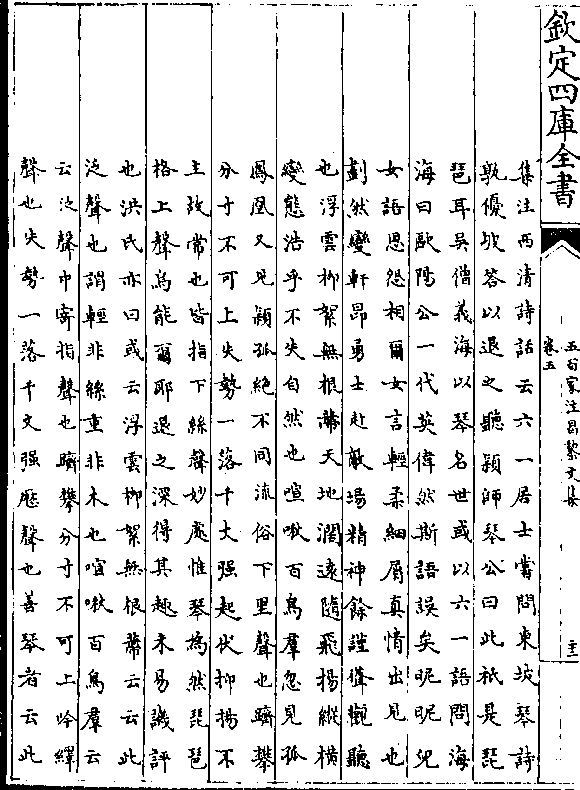 欽定四庫全書
五百家注昌黎文集
卷五
集注西清詩話云六一居士嘗問東坡琴詩
孰優坡答以退之聽穎師琴公曰此祇是琵
琶耳吳僧義海以琴名世或以六一語問海
海曰歐陽公一代英偉然斯語誤矣昵昵兒
女語恩怨相爾女言輕柔細屑真情出見也
劃然變軒昂勇士赴敵場精神餘溢聳觀聽
也浮雲柳絮無根蒂天地濶遠隨飛揚縱橫
變態浩乎不失自然也喧啾百鳥羣忽見孤
鳳凰又見穎孤絶不同流俗下里聲也躋攀
分寸不可上失勢一落千丈强起伏抑揚不
主故常也皆指下絲聲妙處惟琴為然琵琶
格上聲烏能爾耶退之深得其趣未易譏評
也洪氏亦曰或云浮雲柳絮無根蒂云云此
泛聲也謂輕非絲重非木也喧啾百鳥羣云
云泛聲中寄指聲也躋攀分寸不可上吟繹
聲也失勢一落千丈强厯聲也善琴者云此